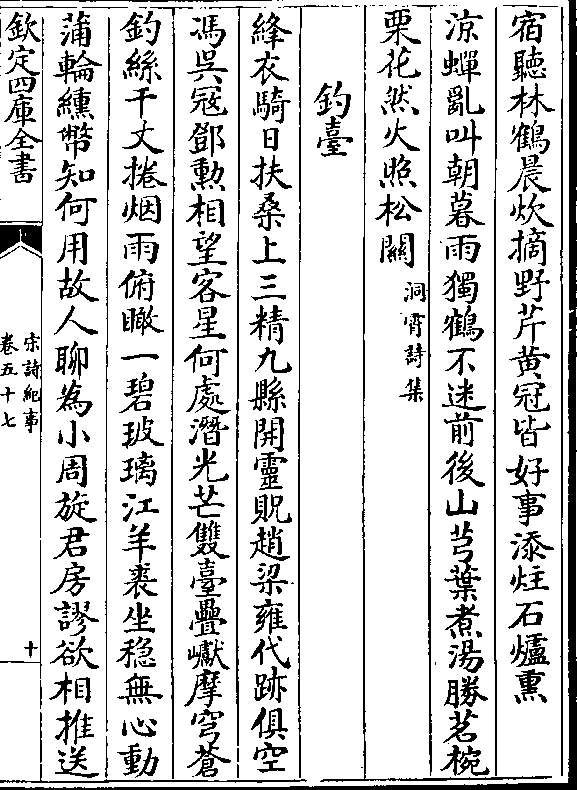 宿聽林鶴晨炊摘野芹黄冠皆好事添炷石爐熏
涼蟬亂叫朝暮雨獨鶴不迷前後山芎葉煮湯勝茗椀
栗花然火照松關 洞霄詩集
釣臺
絳衣騎日扶桑上三精九縣開靈貺趙梁雍代跡俱空
馮吳冦鄧勲相望客星何處潛光芒雙臺疊巘摩穹蒼
釣絲千丈捲烟雨俯瞰一碧玻璃江羊裘坐稳無心動
蒲輪纁幣知何用故人聊為小周旋君房謬欲相推送
欽定四庫全書
宋詩紀事
卷五十七
十